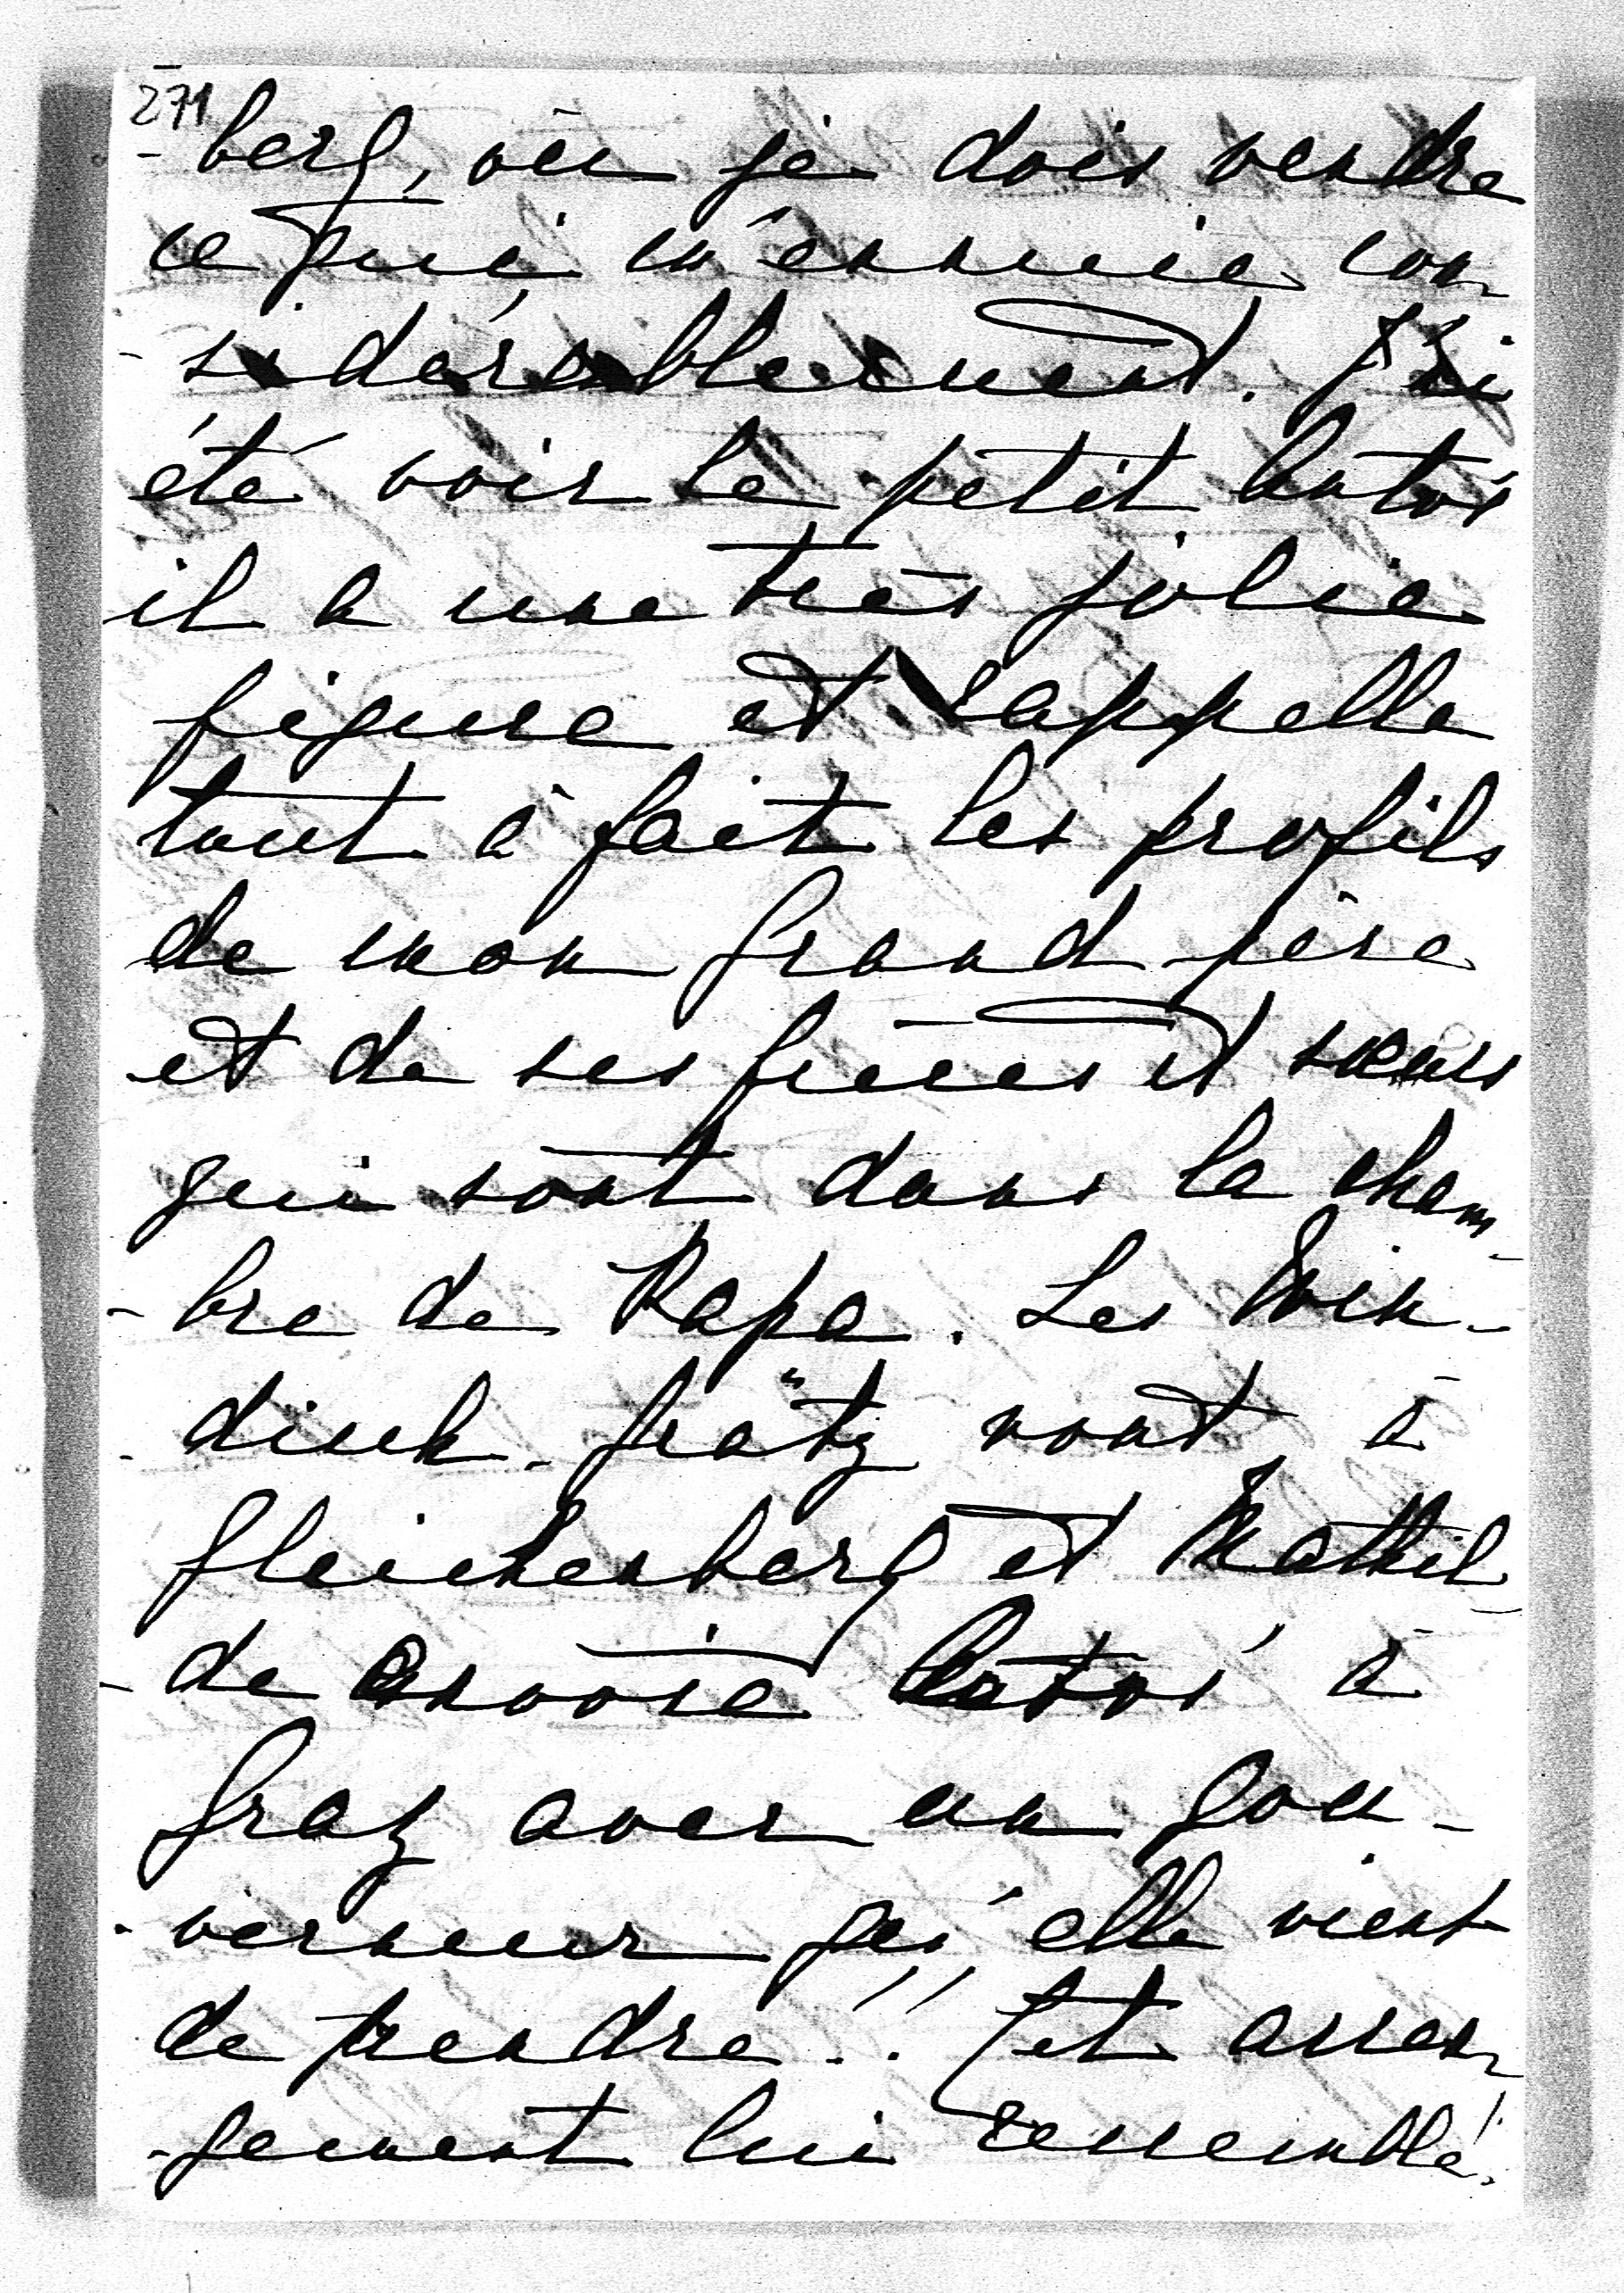 271
- berg, où je dois vendre
ce qui m'ennuie con-
- sidérablement. J'ai
été voir le petit Antoi
il a une très jolie
figure et rappelle
tout à fait les profils
de mon grand père
et de ses frères et sœurs
qui sont dans la cham-
- bre de Papa. Les Win-
- disch-Grätz vont à
Gleichenberg et Mathil
- de envoie Antoi à
Graz avec un gou-
- verneur qu'elle vient
de prendre!! Cet arran-
- gement lui ressemble!